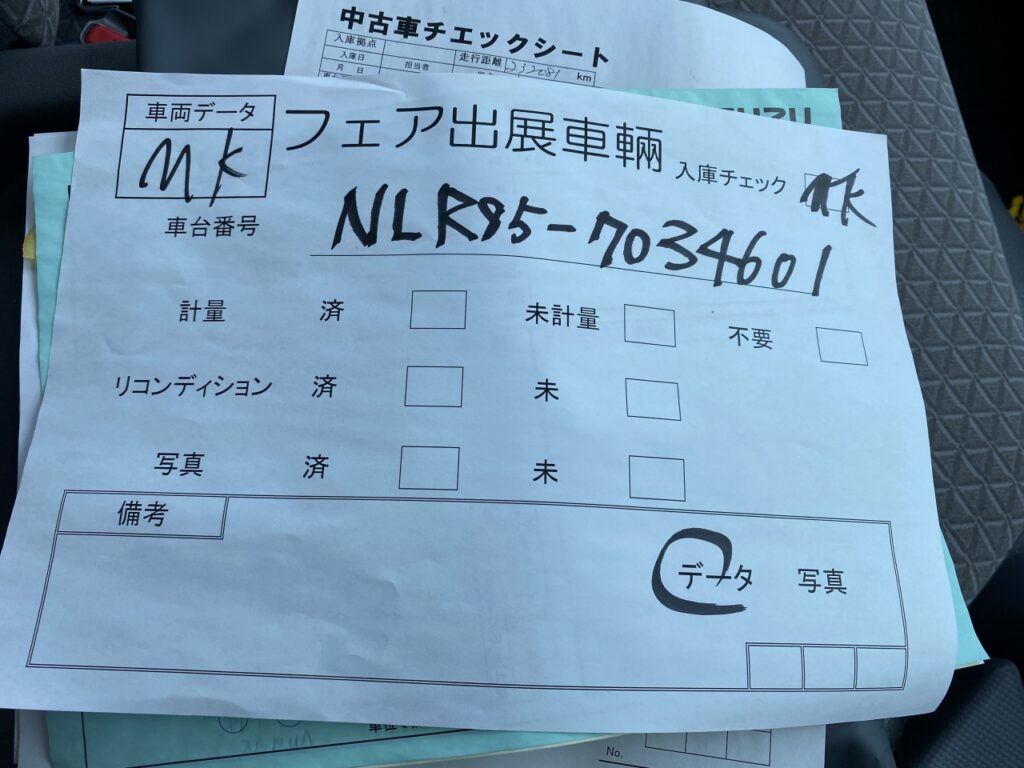 中古車チェックシート
入庫拠点
入庫日 担当者 走行距離 232081 km
月 日
車両データ
MK
フェア出展車輛
入庫チェック MK
車台番号 NLR85-7034601
計量 済 未計量 不要
リコンディション 済 未
写真 済 未
備考
データ 写真
No.